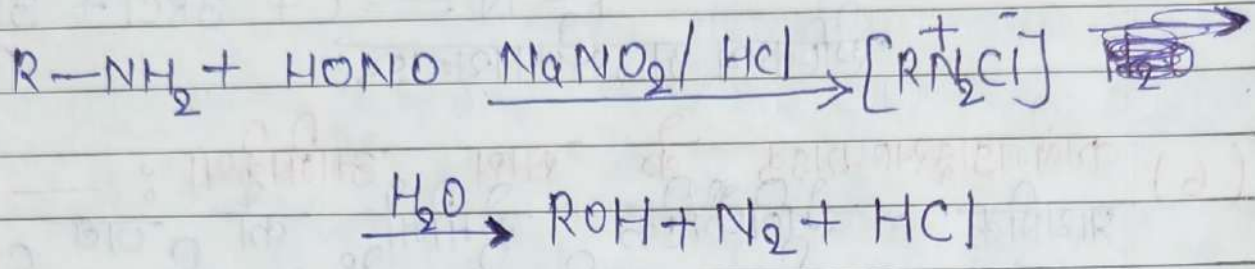 R—NH₂ + HONO NaNO₂/ HCl → [RN₂⁺Cl⁻] →
H₂O → ROH + N₂ + HCl